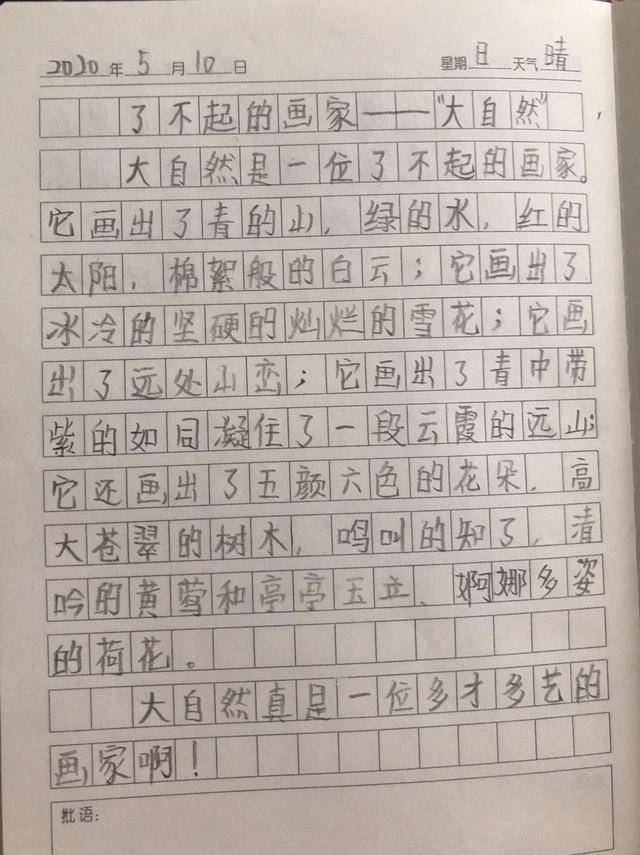 2020年5月10日 星期日 天气晴
了不起的画家——“大自然”
大自然是一位了不起的画家。
它画出了青的山，绿的水，红的
太阳，棉絮般的白云；它画出了
冰冷的坚硬的灿烂的雪花；它画
出了远处山峦；它画出了青中带
紫的如同凝住了一段云霞的远山；
它还画出了五颜六色的花朵，高
大苍翠的树木，鸣叫的知了，清
吟的黄莺和亭亭玉立、婀娜多姿
的荷花。
大自然真是一位多才多艺的
画家啊！
批语：